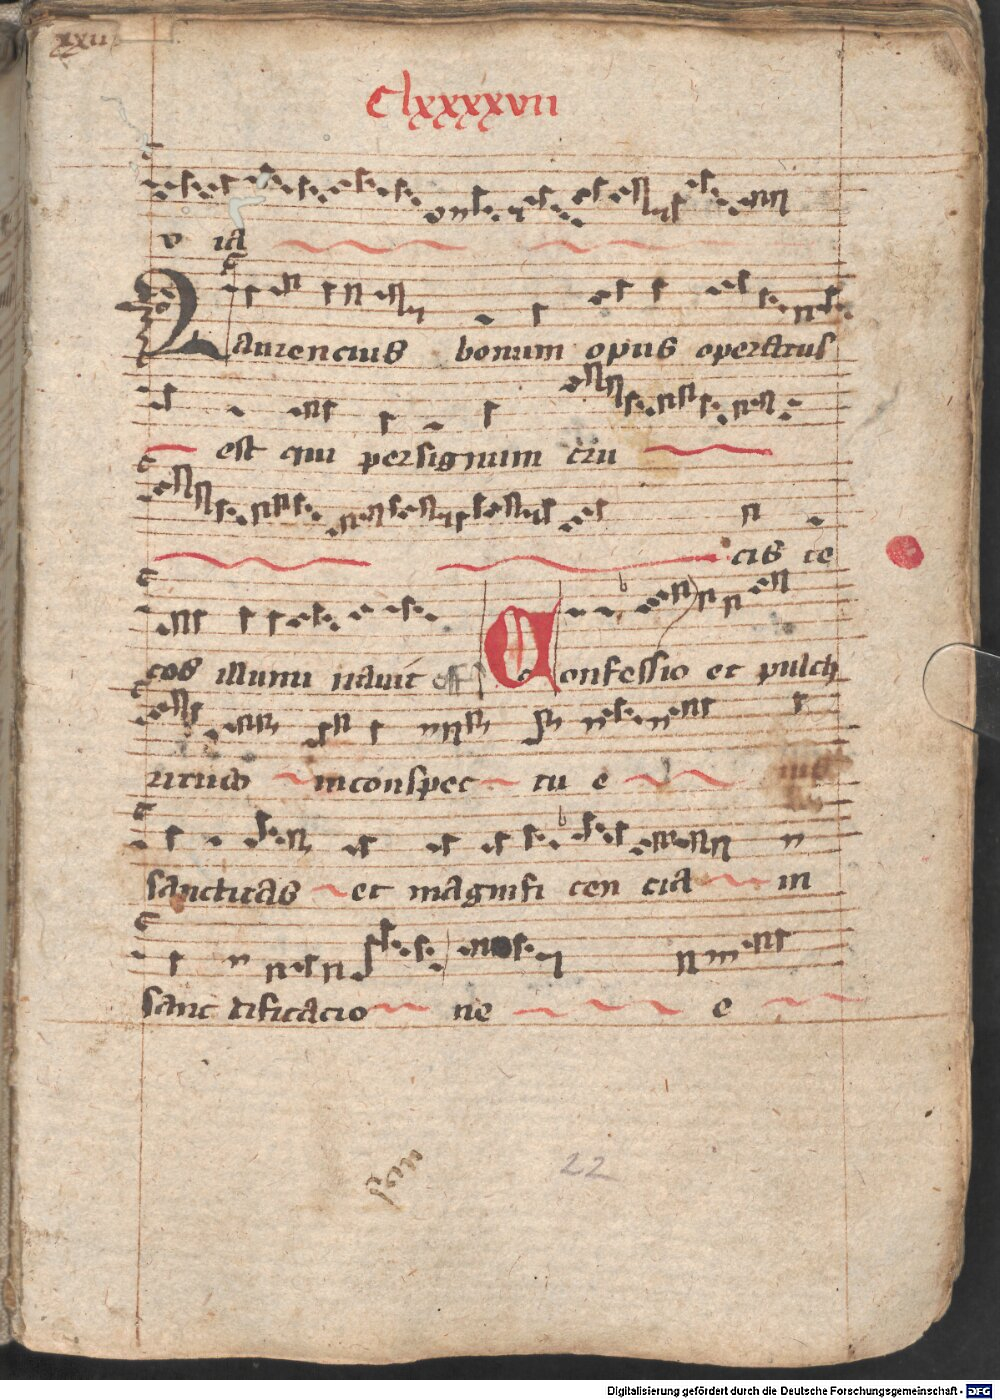 xxii
Clxxxxvii
v ia
Laurencius bonum opus operatus
est qui per signum cru
cis ce
cos illumi navit Confessio et pulch
ritudo in conspec tu e ius
sanctitas et magnifi cen cia in
sanc tificacio ne e
22
Digitalisierung gefördert durch die Deutsche Forschungsgemeinschaft - DFG